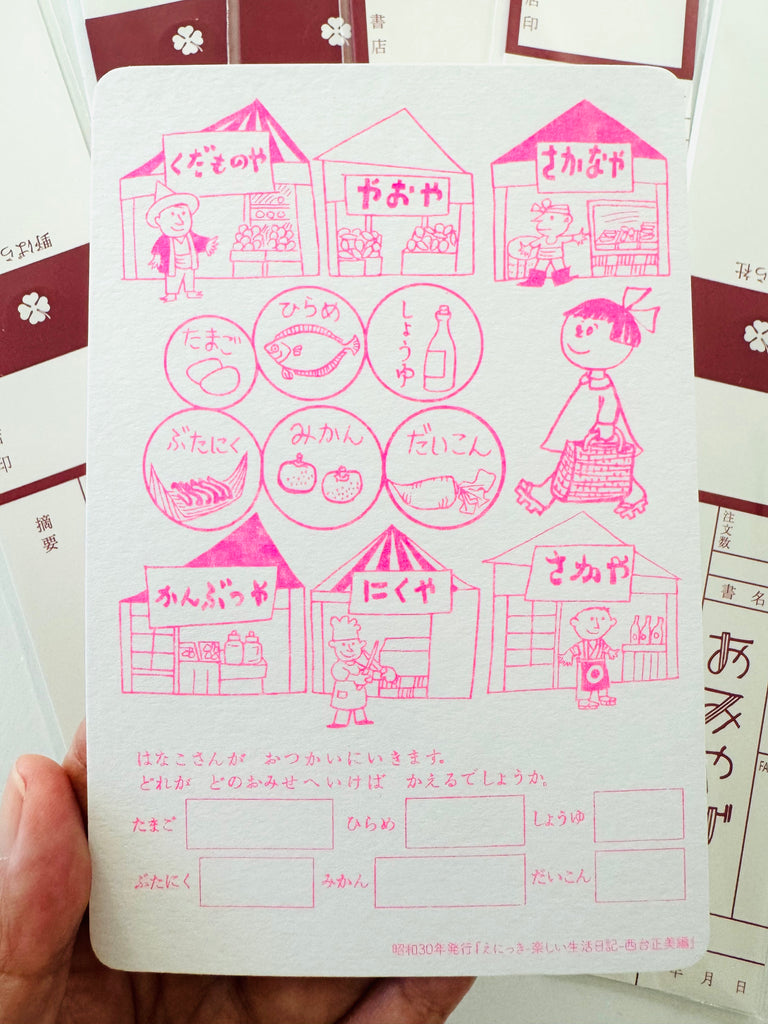 書店
店印
くだものや
やおや
さかなや
野ばら
ら社
たまご
ひらめ
しょうゆ
ぶたにく
みかん
だいこん
かんぶつや
にくや
さかや
印
摘要
注文数
書名
あみゃげ
はなこさんが おつかいにいきます。
どれが どのおみせへいけば かえるでしょうか。
たまご ひらめ しょうゆ
ぶたにく みかん だいこん
昭和30年発行『えにっき-楽しい生活日記-西台正美編』
年 月 日